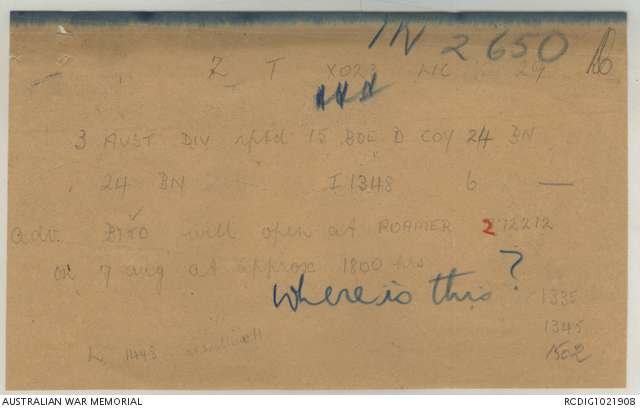 IN 2650
Z T X023 NC 29
3 AUST DIV rptd 15 BDE D COY 24 BN
24 BN I 1348 6 —
adv. will open at ROAMER 272212
on 7 aug at approx 1800 hrs
where is this ?
1335
1345
1502
1443
AUSTRALIAN WAR MEMORIAL
RCDIG1021908